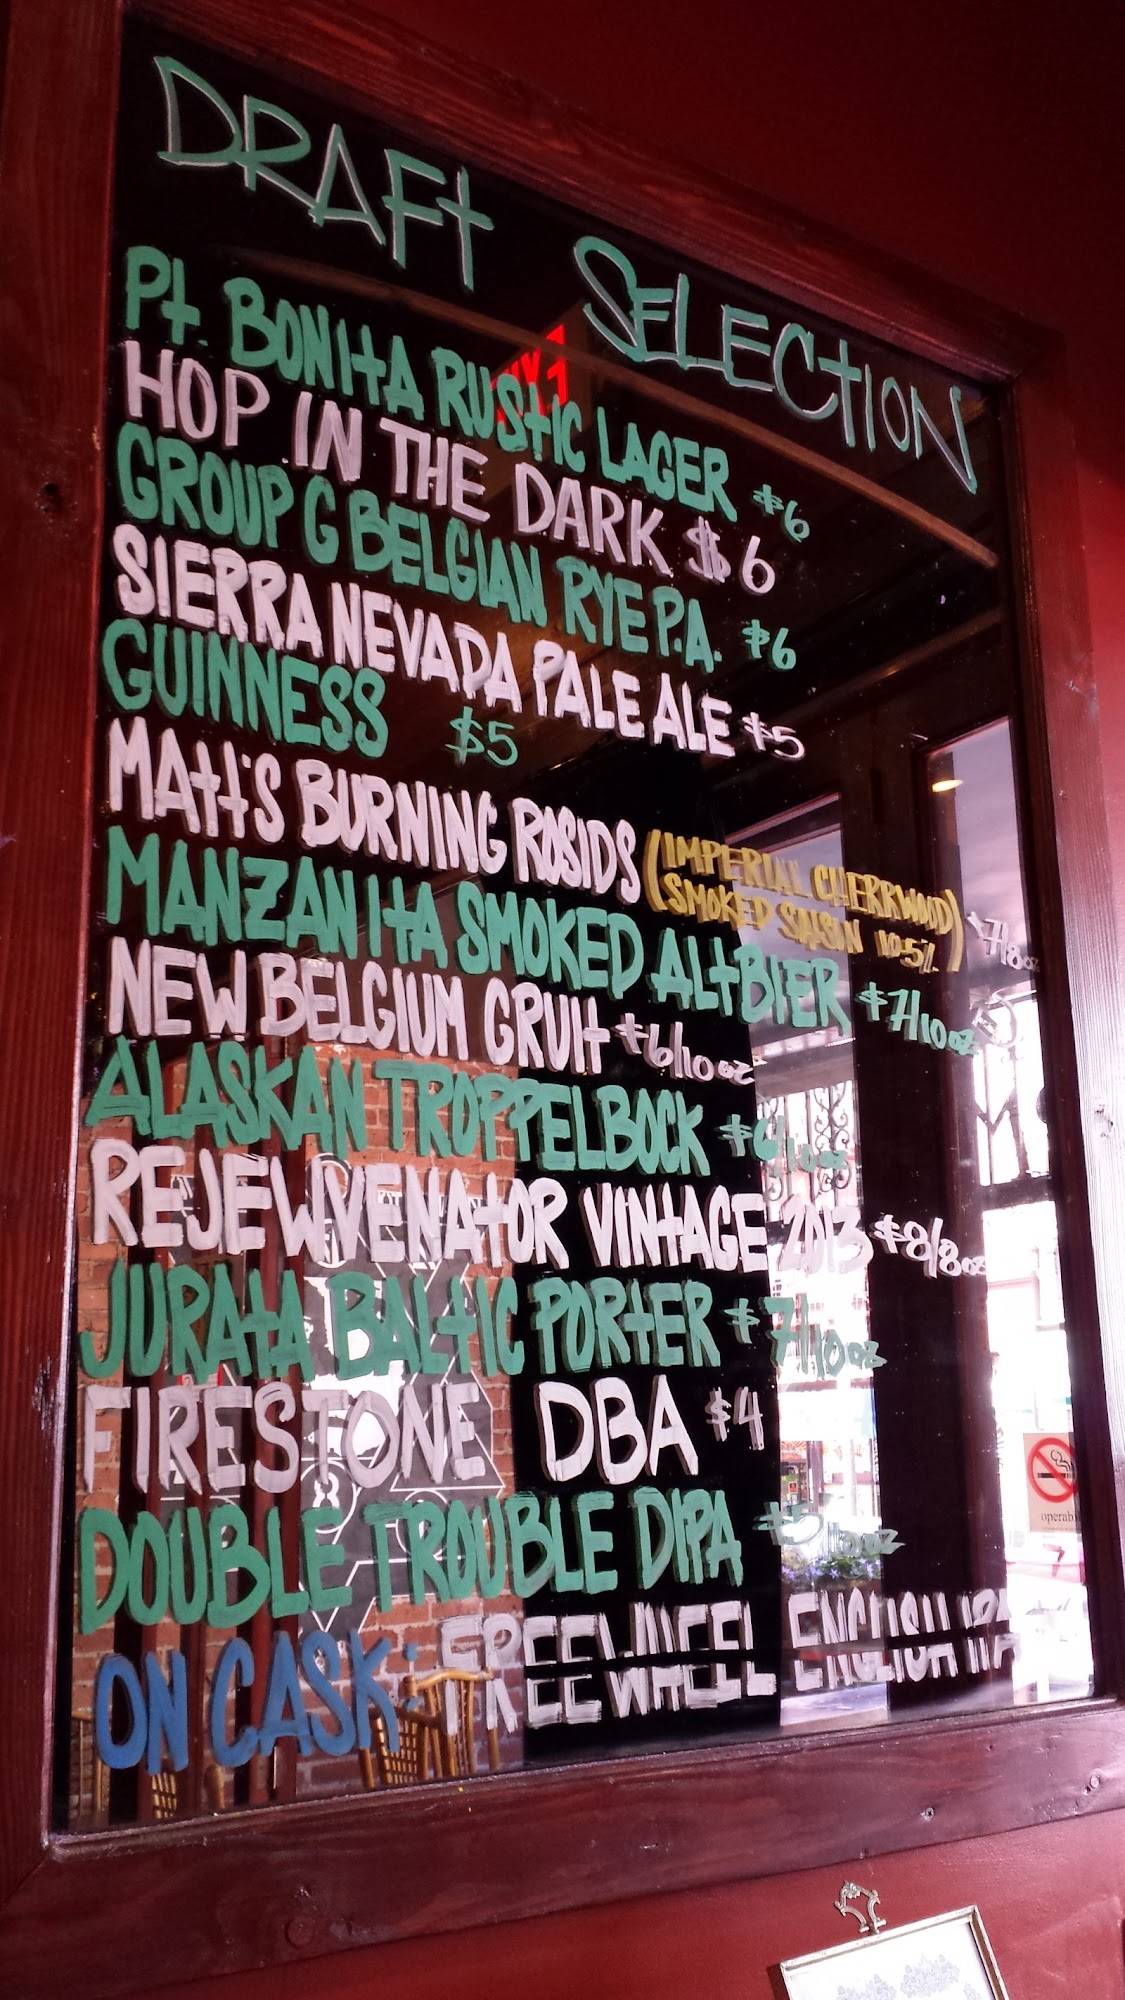 DRAFT SELECTION
Pt. BONITA RUSTIC LAGER $6
HOP IN THE DARK $6
GROUP G BELGIAN RYE P.A. $6
SIERRA NEVADA PALE ALE $5
GUINNESS $5
MATT'S BURNING ROSIDS (IMPERIAL CHERRWOOD)
(SMOKED SAISON 10.5%) $7/8oz
MANZANITA SMOKED ALTBIER $7/10oz
NEW BELGIUM GRUIT $6/10oz
ALASKAN TROPPELBOCK $6/10oz
REJEWVENATOR VINTAGE 2013 $8/8oz
JURATA BALTIC PORTER $7/10oz
FIRESTONE DBA $4
DOUBLE TROUBLE DIPA $5/10oz
ON CASK: FREEWHEEL ENGLISH IPA
operabl